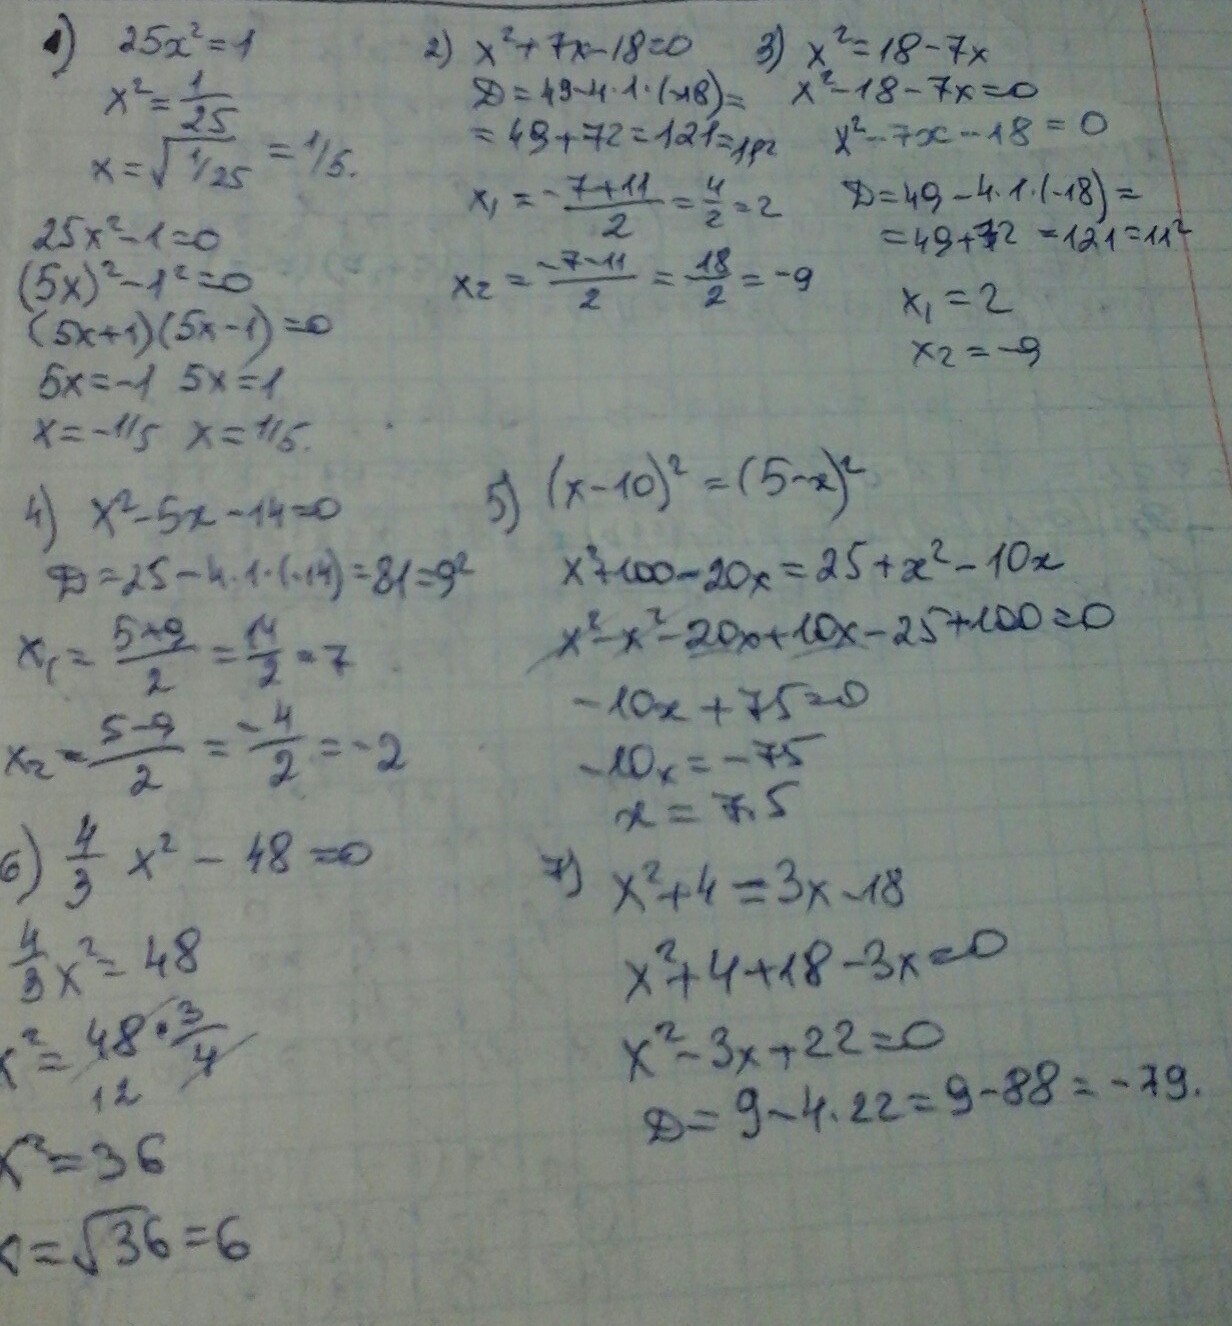 1) 25x² = 1
x² = 1/25
x = √1/25 = 1/5.
25x² - 1 = 0
(5x)² - 1² = 0
(5x+1)(5x-1) = 0
5x = -1 5x = 1
x = -1/5 x = 1/5.
2) x² + 7x - 18 = 0
D = 49 - 4·1·(-18) =
= 49 + 72 = 121 = 11²
x₁ = -7+11/2 = 4/2 = 2
x₂ = -7-11/2 = -18/2 = -9
3) x² = 18 - 7x
x² - 18 - 7x = 0
x² - 7x - 18 = 0
D = 49 - 4·1·(-18) =
= 49 + 72 = 121 = 11²
x₁ = 2
x₂ = -9
4) x² - 5x - 14 = 0
D = 25 - 4·1·(-14) = 81 = 9²
x₁ = 5+9/2 = 14/2 = 7
x₂ = 5-9/2 = -4/2 = -2
5) (x-10)² = (5-x)²
x² + 100 - 20x = 25 + x² - 10x
x² - x² - 20x + 10x - 25 + 100 = 0
-10x + 75 = 0
-10x = -75
x = 7,5
6) 4/3 x² - 48 = 0
4/3 x² = 48
x² = 48·3/4
12
x² = 36
x = √36 = 6
7) x² + 4 = 3x - 18
x² + 4 + 18 - 3x = 0
x² - 3x + 22 = 0
D = 9 - 4·22 = 9 - 88 = -79.